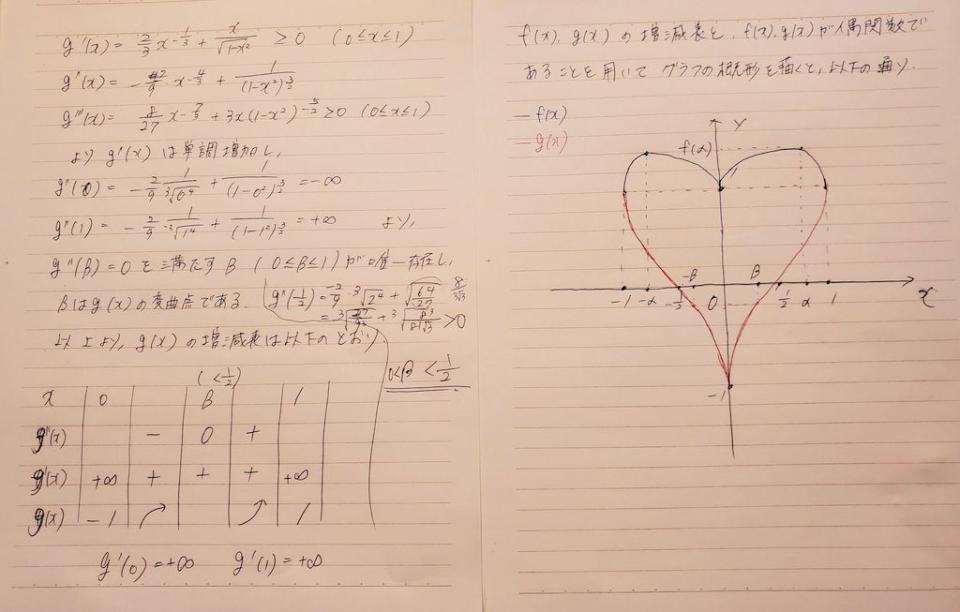 g'(x) = 2/3 x^{-1/3} + x/√(1-x²) ≥ 0 (0≤x≤1)
g'(x) = -2/9 x^{-4/3} + 1/(1-x²)^{3/2}
g'''(x) = 8/27 x^{-7/3} + 3x(1-x²)^{-5/2} ≥ 0 (0≤x≤1)
より g'(x) は単調増加し,
g''(0) = -2/9 1/∛0⁴ + 1/(1-0²)^{3/2} = -∞
g''(1) = -2/9 1/∛1⁴ + 1/(1-1²)^{3/2} = +∞ より,
g''(β) = 0 を満たす β (0≤β≤1) が唯一存在し,
βは g(x) の変曲点である.
g''(1/2) = -2/9 ∛2⁴ + √(64/27) 8/3√3
> 0
以上より, g(x) の増減表は以下のとおり
0<β<1/2
(<1/2)
x 0 β 1
g''(x) - 0 +
g'(x) +∞ + + + +∞
g(x) -1 1
g'(0) = +∞ g'(1) = +∞
f(x), g(x) の増減表と, f(x), g(x) が偶関数で
あることを用いて グラフの概形を描くと, 以下の通り.
- f(x)
- g(x)
y
f(α)
1
-β β
-1 -α -1/2 0 1/2 α 1 x
-1